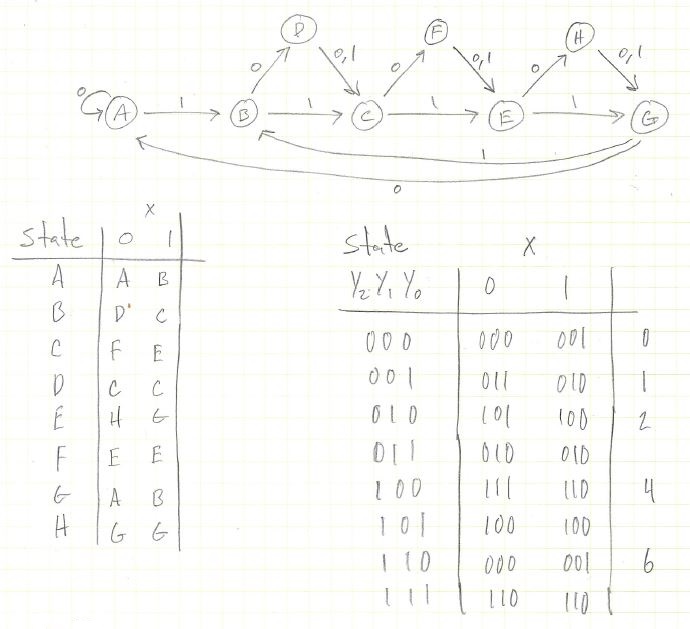 D F H
0 0,1 0 0,1 0 0,1
0 A 1 B 1 C 1 E 1 G
1
0
x
State 0 1
A A B
B D C
C F E
D C C
E H G
F E E
G A B
H G G
State X
Y2 Y1 Y0 0 1
000 000 001 0
001 011 010 1
010 101 100 2
011 010 010
100 111 110 4
101 100 100
110 000 001 6
111 110 110